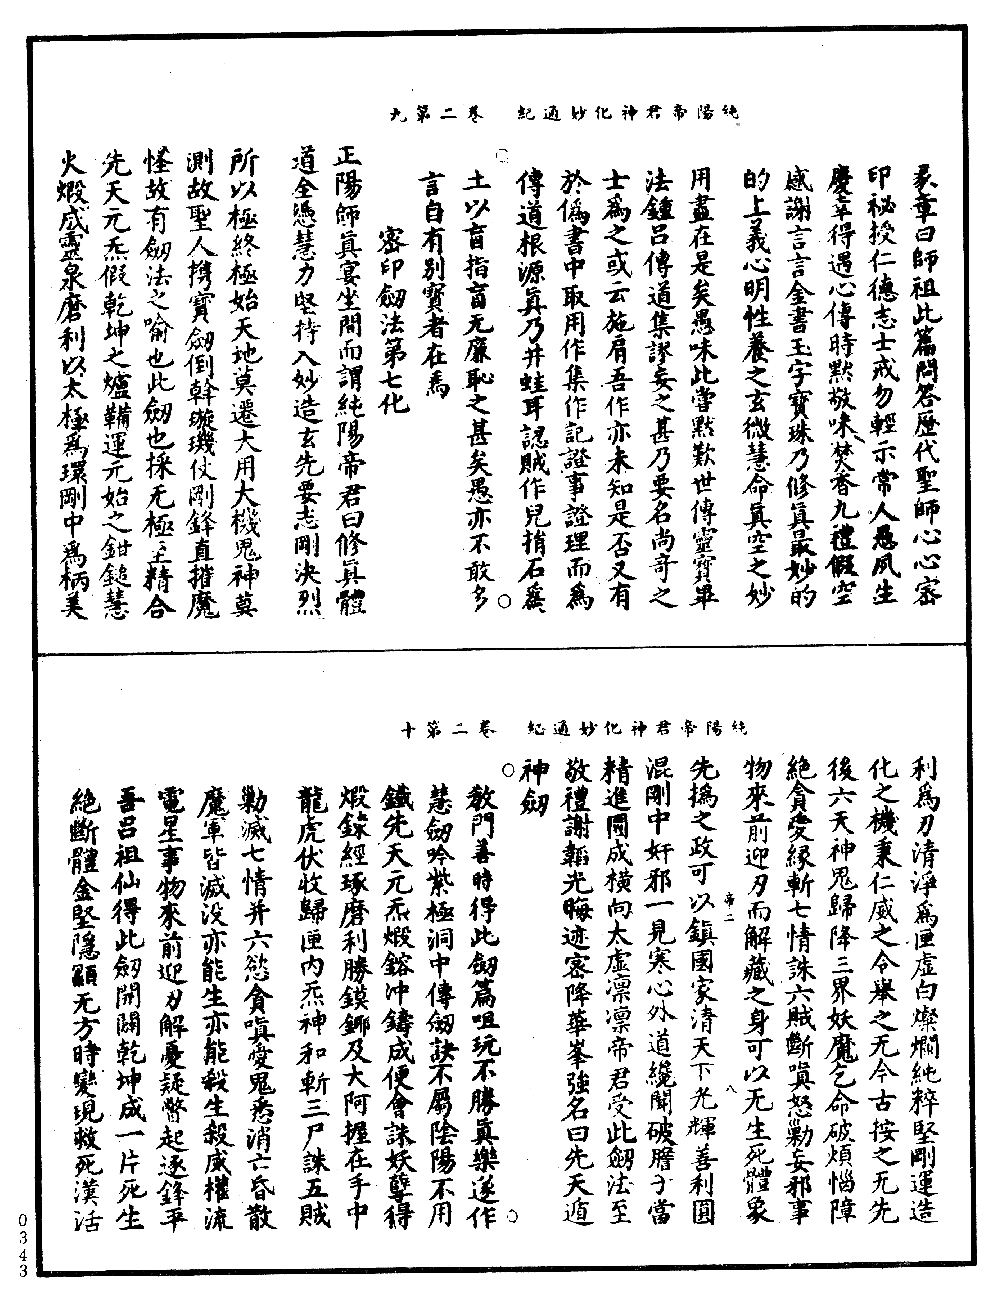 純陽帝君神化妙通紀　卷二第九
彖章曰師祖此篇問答歷代聖師心心密
印秘授仁德志士戒勿輕示常人愚夙生
慶幸得遇心傳時默敬味焚香九禮假空
感謝言言金書玉字寶珠乃修真最妙的
的上義心明性養之玄微慧命真空之妙
用盡在是矣愚味此嘗默歎世傳靈寶畢
法鍾呂傳道集謬妄之甚乃要名尚奇之
士爲之或云施肩吾作亦未知是否又有
於僞書中取用作集作記證事證理而爲
傳道根源真乃井蛙耳認賊作兒指石爲
土以盲指盲无廉恥之甚矣愚亦不敢多
言自有別寶者在焉
密印劒法第七化
正陽師真宴坐間而謂純陽帝君曰修真體
道全憑慧力堅持入妙造玄先要志剛決烈
所以極終極始天地莫遷大用大機鬼神莫
測故聖人携寶劒倒斡璇璣仗剛鋒直摧魔
怪故有劒法之喻也此劒也採无極至精合
先天元炁假乾坤之爐鞴運元始之鉗鎚慧
火煅成靈泉磨利以太極爲環剛中爲柄美
純陽帝君神化妙通紀　卷二第十
利爲刀清淨爲匣虛白燦爛純粹堅剛運造
化之機秉仁威之令舉之无今古按之无先
後六天神鬼歸降三界妖魔乞命破煩惱障
絶貪愛緣斬七情誅六賊斷嗔怒勦妄邪事
物來前迎刃而解藏之身可以无生死體象
帝二
八
先撝之政可以鎮國家清天下光輝善利圓
混剛中奸邪一見寒心外道纔聞破膽子當
精進圓成橫向太虛凛凛帝君受此劒法至
敬禮謝韜光晦迹密降華峯強名曰先天遁
神劒
教門善時得此劒篇咀玩不勝真樂遂作
慧劒吟紫極洞中傳劒訣不屬陰陽不用
鐵先天元炁煅鎔冲鑄成便會誅妖孽得
煅鍊經琢磨利勝鏌鎁及大阿握在手中
龍虎伏收歸匣内炁神和斬三尸誅五賊
勦滅七情并六慾貪嗔愛鬼悉消亡昏散
魔軍皆滅没亦能生亦能殺生殺威權流
電星事物來前迎刃解憂疑瞥起逐鋒平
吾呂祖仙得此劒開闢乾坤成一片死生
絶斷體金堅隱顯无方時變現救死漢活
0343